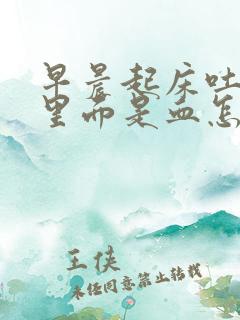 早晨起床吐
里面是血怎
王侠
未经同意禁止转载